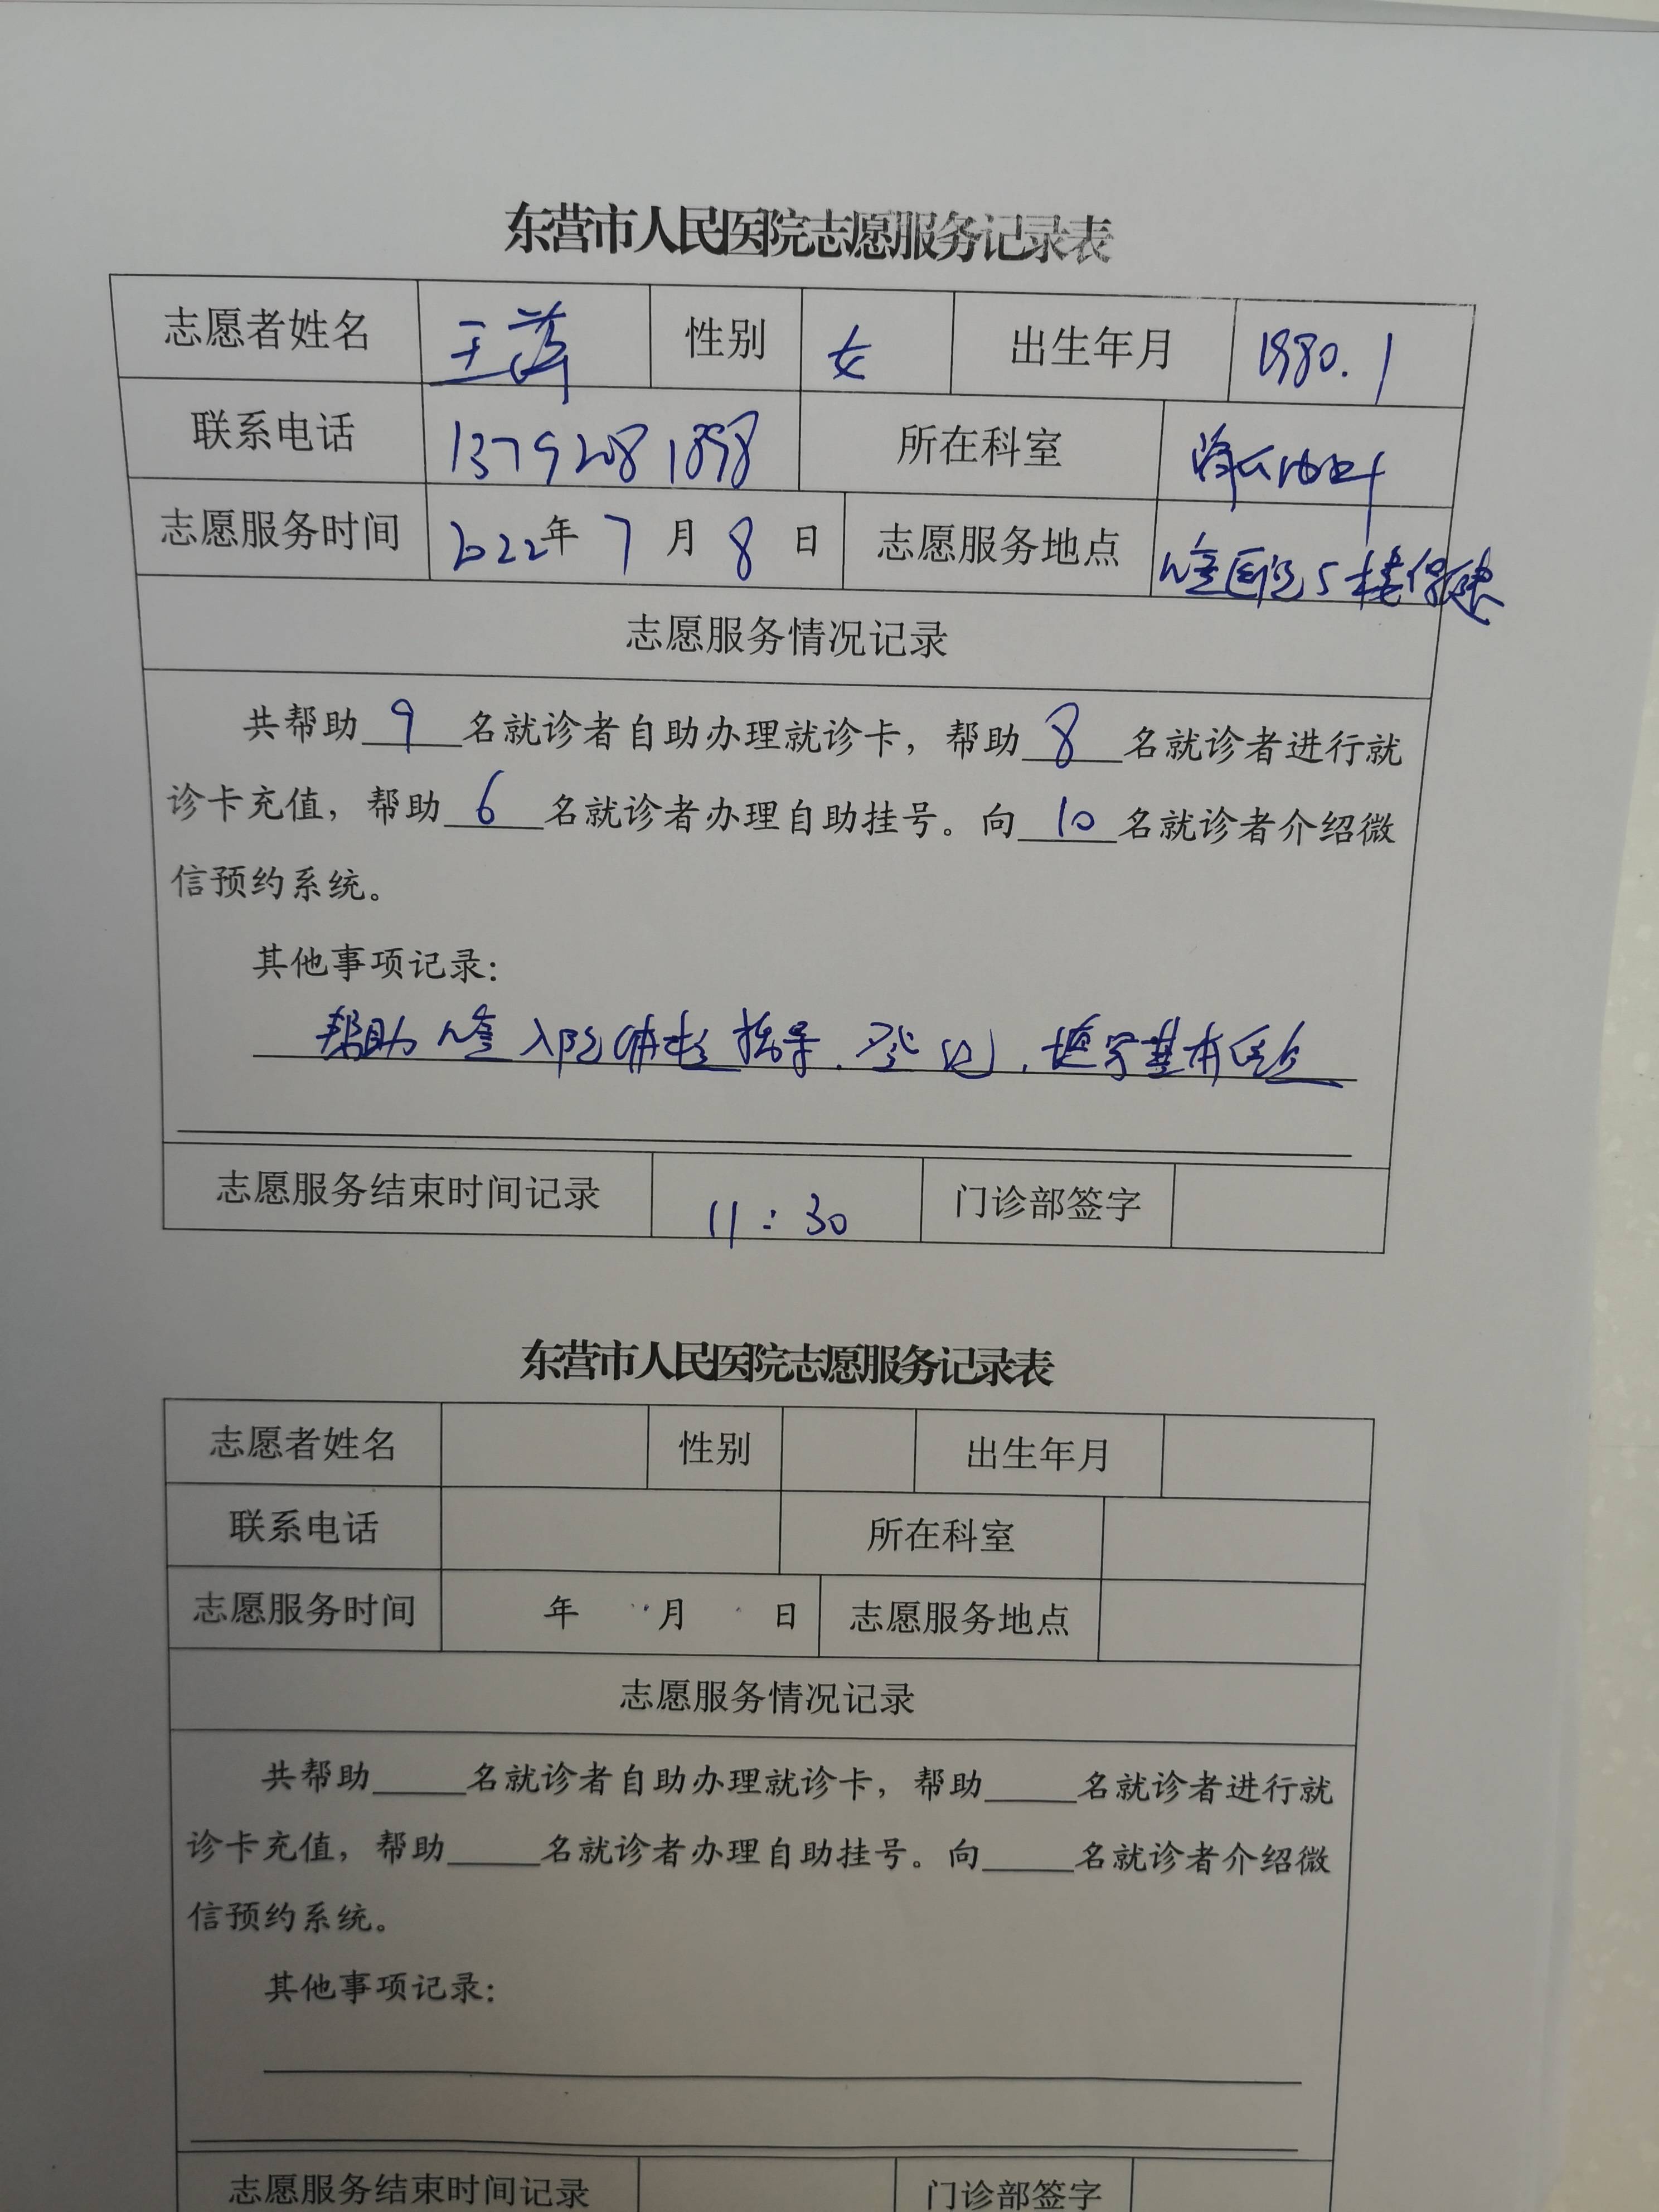 东营市人民医院志愿服务记录表
志愿者姓名 王萍 性别 女 出生年月 1980.1
联系电话 13792081898 所在科室
志愿服务时间 2022年 7 月 8 日 志愿服务地点 儿童医院5楼保健
志愿服务情况记录
共帮助 9 名就诊者自助办理就诊卡，帮助 8 名就诊者进行就
诊卡充值，帮助 6 名就诊者办理自助挂号。向 10 名就诊者介绍微
信预约系统。
其他事项记录：
帮助儿童入院体检指导、登记，填写基本信息
志愿服务结束时间记录 11：30 门诊部签字
东营市人民医院志愿服务记录表
志愿者姓名 性别 出生年月
联系电话 所在科室
志愿服务时间 年 月 日 志愿服务地点
志愿服务情况记录
共帮助_____名就诊者自助办理就诊卡，帮助_____名就诊者进行就
诊卡充值，帮助_____名就诊者办理自助挂号。向_____名就诊者介绍微
信预约系统。
其他事项记录：
志愿服务结束时间记录 门诊部签字